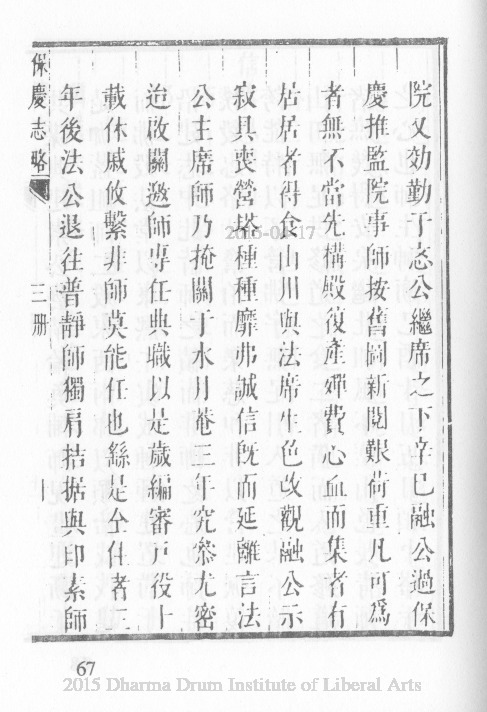 院又効勤于忞公繼席之下辛巳融公過保
慶推監院事師按舊圖新閱艱荷重凡可爲
者無不當先構殿復產殫費心血而集者有
居居者得食山川與法席生色改觀融公示
寂具喪營塔種種靡弗誠信旣而延離言法
公主席師乃掩關于水月菴三年究叅尤密
迨啟關邀師専任典職以是歲編審戸役十
載休戚攸繫非師莫能任也繇是仝住者二
年後法公退往普靜師獨肩拮据與印素師
保慶志略
三册
十
67
2015-04-17
2015 Dharma Drum Institute of Liberal Arts